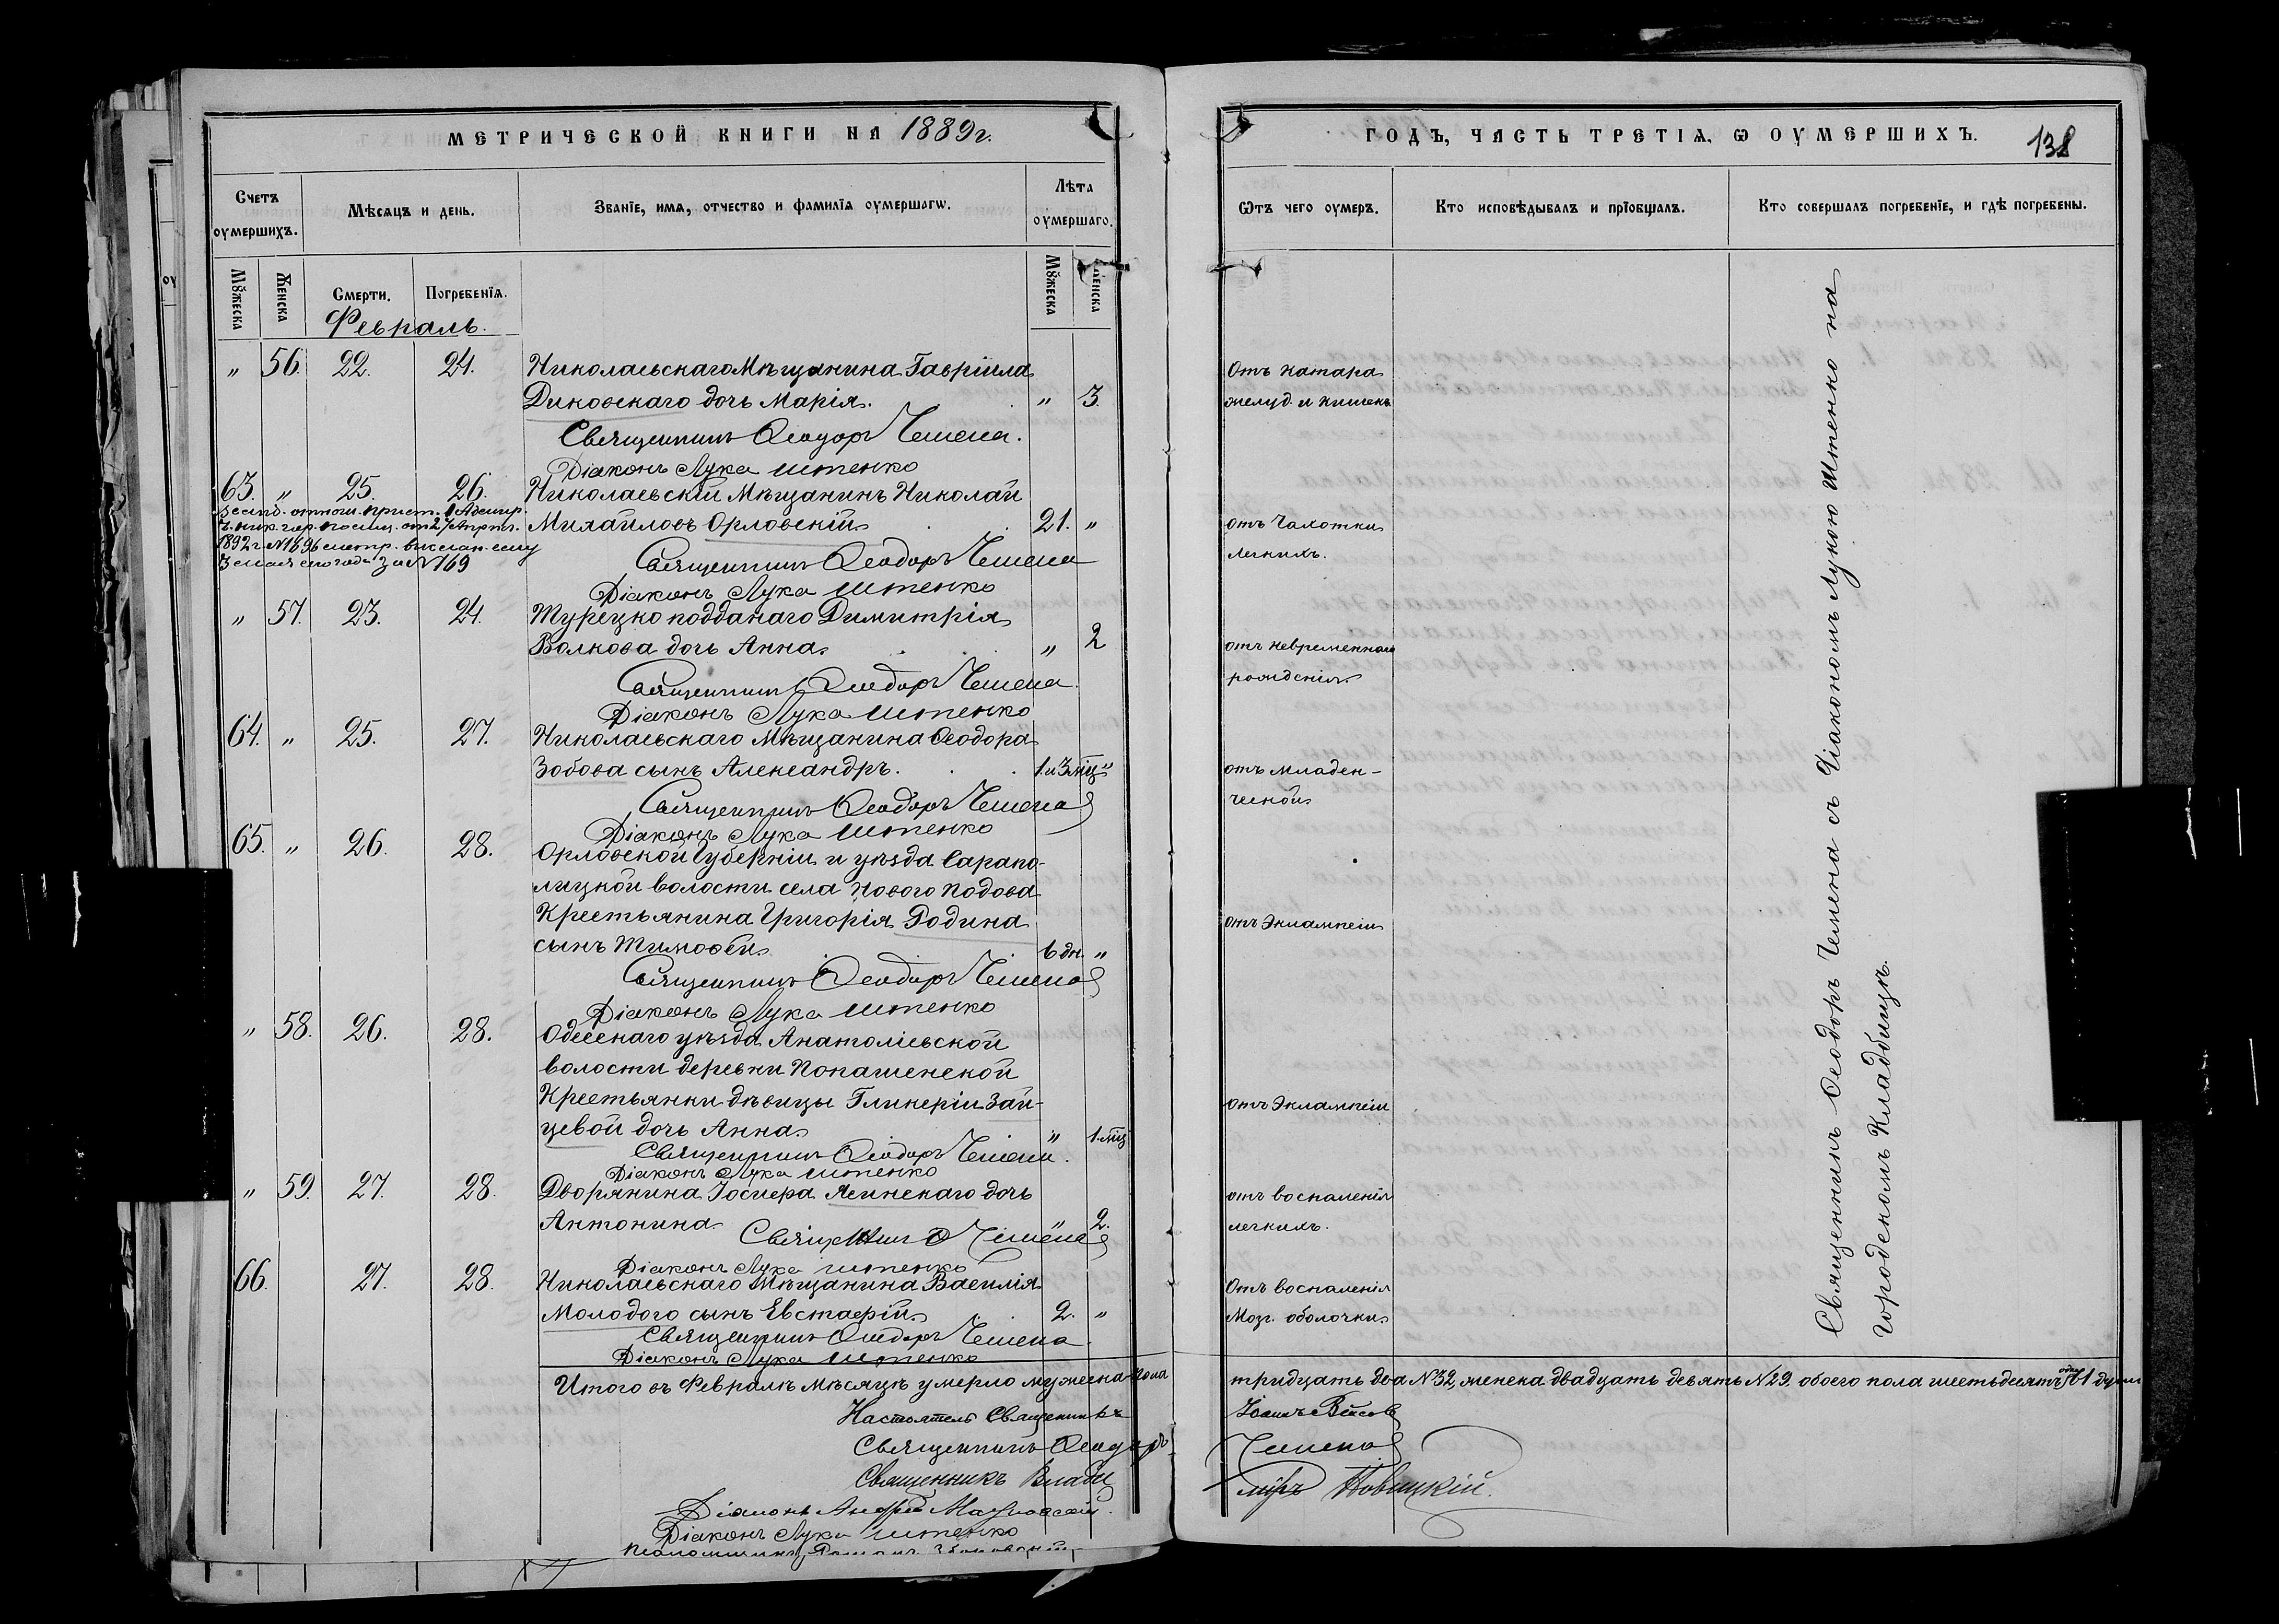 МЕТРИЧЕСКОЙ КНИГИ НА 1889 г.
Счетъ оумершихъ.
Мѣсяцъ и день.
Званіе, имя, отчество и фамилія оумершагѡ.
Лѣта оумершаго.
Мꙋжеска
Женска
Смерти.
Погребенія.
Мꙋжеска
Женска
Февраль.
" 56. 22. 24. Николаевскаго Мѣщанина Гавріила
Диковскаго дочь Марія. " 3.
Священникъ Ѳеодоръ Чемена.
Діаконъ Лука Штенко
63. " 25. 26. Николаевскій Мѣщанинъ Николай
Михайловъ Орловскій. 21. "
1892 г. № 1696
за № 169
Священникъ Ѳеодоръ Чемена
Діаконъ Лука Штенко
" 57. 23. 24. Турецко подданаго Димитрія
Волкова дочь Анна. " 2
Священникъ Ѳеодоръ Чемена.
Діаконъ Лука Штенко
64. " 25. 27. Николаевскаго Мѣщанина Ѳеодора
Зобова сынъ Александръ. 1. и 3 мц "
Священникъ Ѳеодоръ Чемена
Діаконъ Лука Штенко
65. " 26. 28. Орловской Губерніи и уѣзда
волости села Нового
Крестьянина Григорія Родина
сынъ Тимоѳей. 6 дн. "
Священникъ Ѳеодоръ Чемена
Діаконъ Лука Штенко
" 58. 26. 28. Одесскаго уѣзда Анатоліевской
волости деревни
Крестьянки дѣвицы Гликеріи Зай-
цевой дочь Анна. " 1. мц
Священникъ Ѳеодоръ Чемена.
Діаконъ Лука Штенко
" 59. 27. 28. Дворянина Іосифа Ясинскаго дочь
Антонина. " 2.
Священникъ Ѳ Чемена
Діаконъ Лука Штенко
66. 27. 28. Николаевскаго Мѣщанина Василія
Молодого сынъ Евстафій. 2. "
Священникъ Ѳеодоръ Чемена.
Діаконъ Лука Штенко
Итого въ Февралѣ Мѣсяцѣ умерло мужеска пола
Настоятель Священникъ
Священникъ Ѳеодоръ
Священникъ Влади
Діаконъ Андрей
Діаконъ Лука Штенко
Псаломщикъ Романъ
ГОДЪ, ЧАСТЬ ТРЕТІЯ, Ѡ ОУМЕРШИХЪ.
138
Ѿтъ чего оумеръ.
Кто исповѣдывалъ и пріобщалъ.
Кто совершалъ погребеніе, и гдѣ погребены.
Отъ катара
желуд. и кишекъ
отъ Чахотки
легкихъ.
отъ невременнаго
рожденія.
отъ младен-
ческой
отъ Эклампсіи
отъ Эклампсіи
отъ воспаленія
легкихъ.
Отъ воспаленія
Мозг. оболочки.
Священникъ Ѳеодоръ Чемена съ Діакономъ Лукою Штенко на
городскомъ Кладбищѣ.
тридцать два № 32, женска двадцать девять № 29. обоего пола шестьдесятъ одна 61 душа
Іоаннъ
Чемена
міръ Новицкій.